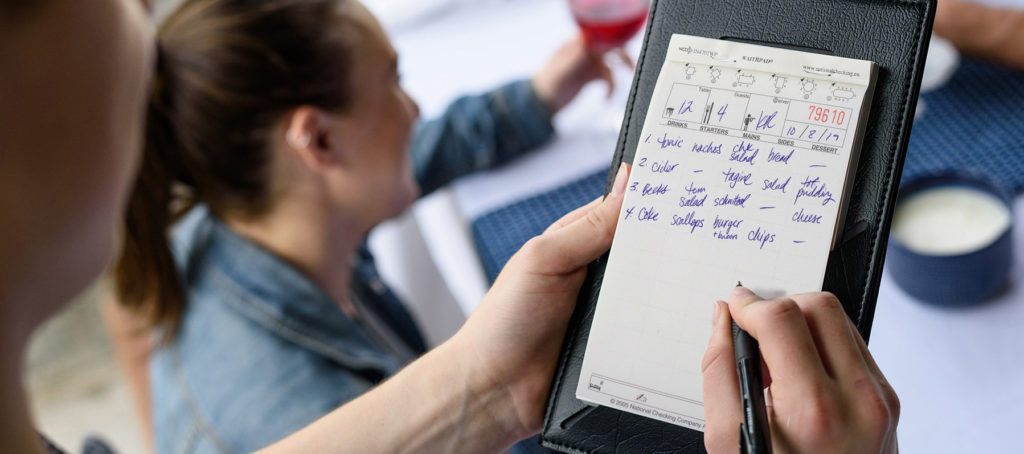 WAITRPAD®
www.nationalchecking.co
Table Guests Server
12 4 79610
10/8/19
DRINKS STARTERS MAINS SIDES DESSERT
1. tonic nachos chk salad bread –
2. cider – tagine salad tof pudding
3. tom salad schnitzel – cheese
4. Coke scallops burger + bacon chips –
© 2005 National Checking Company